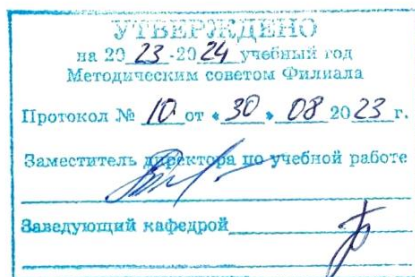 УТВЕРЖДЕНО
на 20 23 -20 24 учебный год
Методическим советом Филиала
Протокол № 10 от «30» 08 20 23 г.
Заместитель директора по учебной работе
Заведующий кафедрой